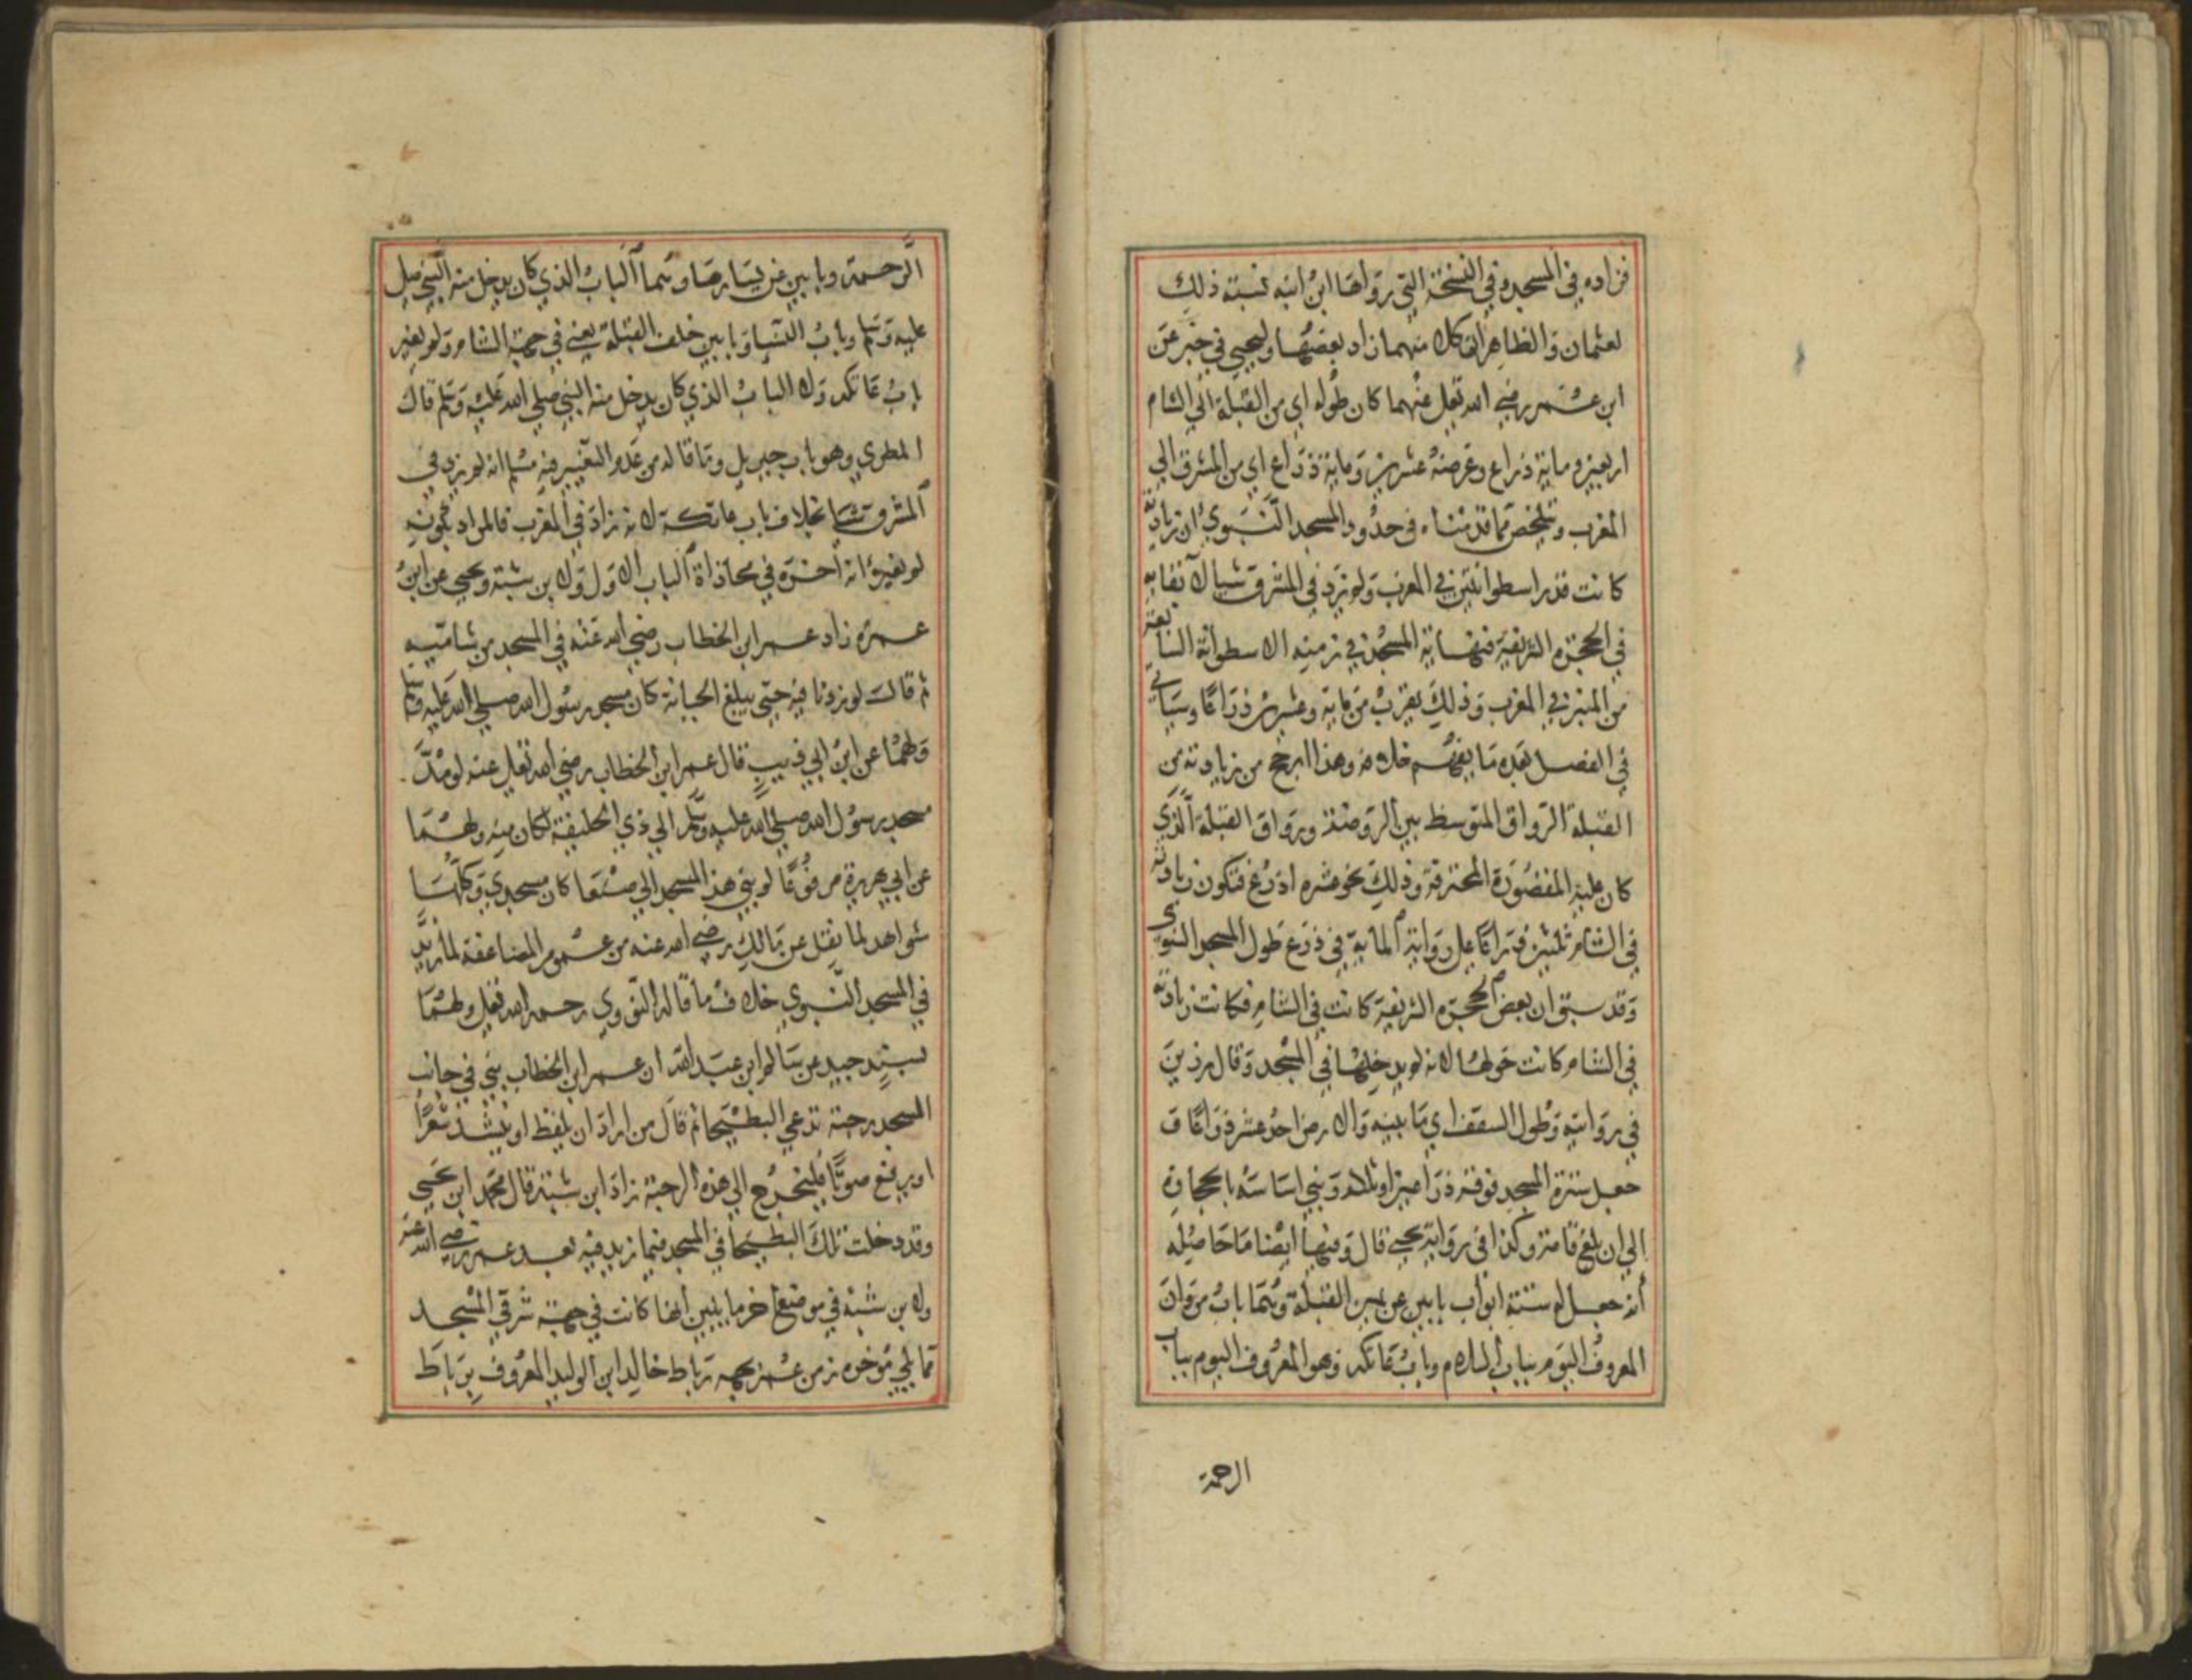 فزاده في المسجد وفي النسخة التي رواها ابن ابنه نسبة ذلك
لعثمان والظاهر ان كلا منهما زاد بعضها وليحيي في خبر عن
ابن عمر رضي الله تعلي عنهما كان طوله اي من القبلة الي الشام
اربعين وماية ذراع وعرضه عشرين وماية ذراع اي من المشرق الي
المغرب وتلخص مما قدمناه في حدود المسجد النبوي ان زيادته
كانت قدر اسطوانتين في المغرب ولم يزد في المشرق شيا لانقايه
في الحجرة الشريفة فنهاية المسجد في زمنه الاسطوانة السابعة
من المنبر في المغرب وذلك يقرب من ماية وعشرين ذراعا وسياتي
في الفصل بعده ما يفهم خلافه وهذا ارجح من زيادته من
القبلة الرواق المتوسط بين الروضة ورواق القبلة الذي
كان عليه المقصورة المحترقة وذلك نحو عشره اذرع فتكون زيادته
في الشام ثلثين ذراعا علي رواية الماية في ذرع طول المسجد النبوي
وقد سبق ان بعض الحجرة الشريفة كانت في الشام فكانت زيادته
في الشام كانت حولها لانه لم يدخلها في المسجد وقال رزين
في روايته وطول السقف اي ما بينه والارض احد عشر ذراعا و
جعل سترة المسجد فوقه ذراعين او ثلاثه وبني اساسه بالحجارة
الي ان بلغ قامة وكذا في رواية يحيي قال وفيها ايضا ما حاصله
أنه جعل له ستة ابواب بابين عن يمين القبلة وسما باب مروان
المعروف اليوم بباب السلام وباب عاتكه وهو المعروف اليوم بباب
الرحمة
الرحمة وبابين عن يسارها وسما الباب الذي كان يدخل منه النبي صلي
عليه وسلم وباب النسا وبابين خلف القبلة يعني في جهة الشام ولم يغير
باب عاتكه ولا الباب الذي كان يدخل منه النبي صلي الله عليه وسلم قال
المطري وهو باب جبريل وما قاله من عدم التغيير فيه مسلم انه لم يزد في
المشرق شيا بخلاف باب عاتكة لانه زاد في المغرب فالمراد بكونه
لم يغيره انه اخره في محاذاة الباب الاول ولابن شبة ويحيي عن ابن
عمره زاد عمر ابن الخطاب رضي الله عنه في المسجد من شاميه
ثم قالت لو زدنا فيه حتي يبلغ الجبانة كان مسجد رسول الله صلي الله عليه وسلم
ولهما عن ابن ابي ذييب قال عمر ابن الخطاب رضي الله تعلي عنه لو مد
مسجد رسول الله صلي الله عليه وسلم الي ذي الحليفة لكان منه ولهما
عن ابي هريرة مرفوعا لو بني هذا المسجد الي صنعا كان مسجدي وكلها
شواهد لما نقل عن مالك رضي الله عنه من عموم المضاعفة لما زيد
في المسجد النبوي خلاف ما قاله النووي رحمه الله تعلي ولهما
بسند جيد عن سالم ابن عبد الله ان عمر ابن الخطاب بني في جانب
المسجد رحبة تدعي البطيحا ثم قال من اراد ان يلغط او ينشد شعرا
او يرفع صوتا فليخرج الي هذه الرحبة زاد ابن شبة قال محمد ابن يحيي
وقد دخلت تلك البطيحا في المسجد فيما زيد فيه بعد عمر رضي الله عنه
ولابن شبه في موضع اخر ما يبين انها كانت في جهة شرقي المسجد
مما يلي موخره زمن عمر بجهه رباط خالد ابن الوليد المعروف برباط